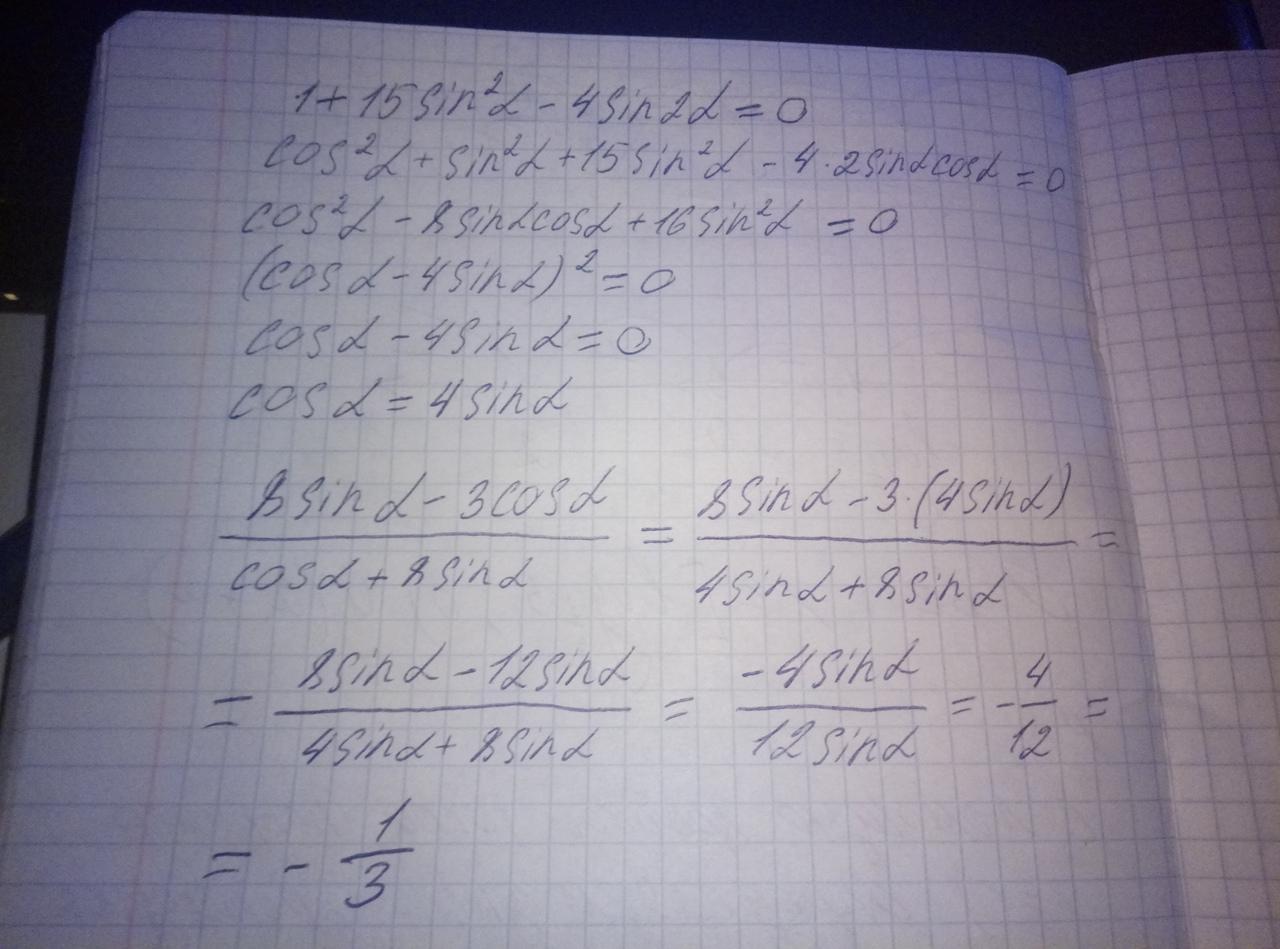 1 + 15 sin²α - 4 sin 2α = 0
cos²α + sin²α + 15 sin²α - 4 · 2 sinα cosα = 0
cos²α - 8 sinα cosα + 16 sin²α = 0
(cosα - 4 sinα)² = 0
cosα - 4 sinα = 0
cosα = 4 sinα
(8 sinα - 3 cosα)/(cosα + 8 sinα) = (8 sinα - 3 · (4 sinα))/(4 sinα + 8 sinα) =
= (8 sinα - 12 sinα)/(4 sinα + 8 sinα) = (-4 sinα)/(12 sinα) = - 4/12 =
= - 1/3